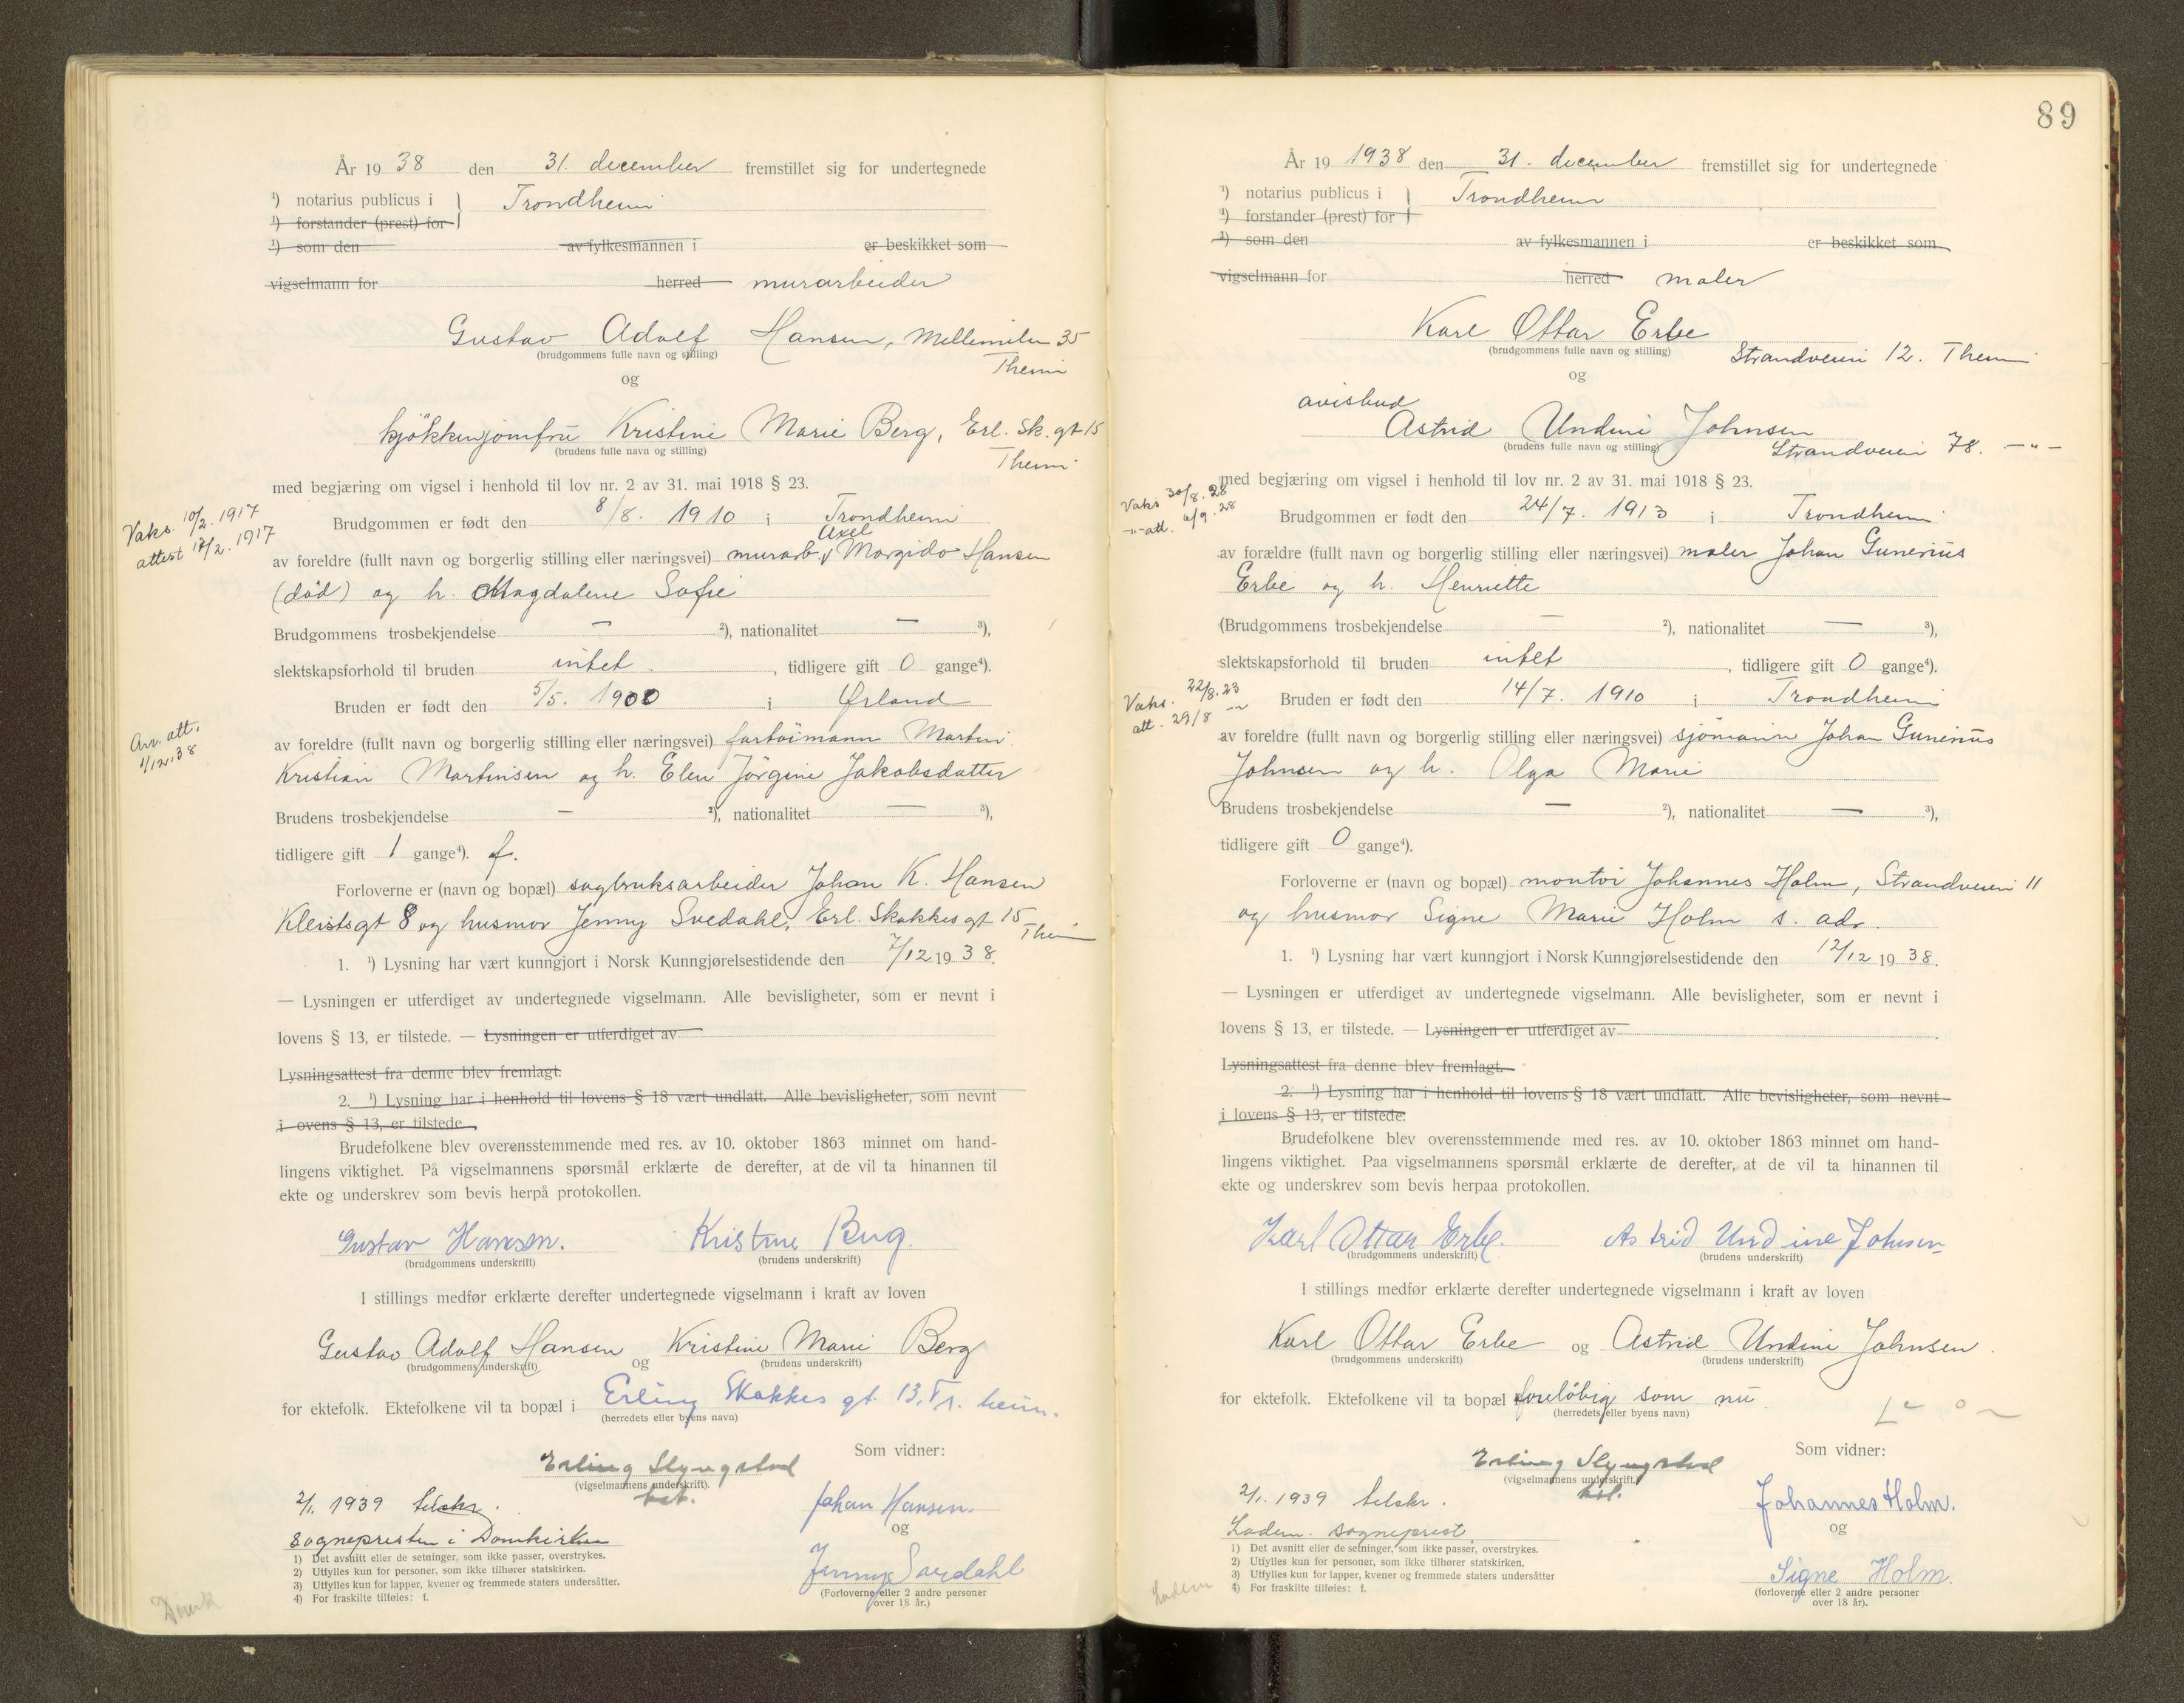 År 19 38 den 31. december fremstillet sig for undertegnede
¹) notarius publicus i } Trondheim
¹) forstander (prest) for
¹) som den av fylkesmannen i er beskikket som
vigselmann for herred murarbeider
Gustav Adolf Hansen, Mellemilen 35
(brudgommens fulle navn og stilling)
Theim
og
kjøkkenjomfru Kristine Marie Berg, Erl. Sk. gt 15
(brudens fulle navn og stilling)
Theim
med begjæring om vigsel i henhold til lov nr. 2 av 31. mai 1918 § 23.
Vaks. 10/2. 1917
attest 17/2. 1917
Brudgommen er født den 8/8. 1910 i Trondheim
Axel
av foreldre (fullt navn og borgerlig stilling eller næringsvei) murarb. Margido Hansen
(død) og h. Magdalene Sofie
Brudgommens trosbekjendelse — ²), nationalitet — ³),
slektskapsforhold til bruden intet. , tidligere gift 0 gange⁴).
Bruden er født den 5/5. 1900 i Ørland
Arr. att.
1/12.38
av foreldre (fullt navn og borgerlig stilling eller næringsvei) fartøimann Martin
Kristian Martinsen og h. Elen Jørgine Jakobsdatter
Brudens trosbekjendelse — ²), nationalitet — ³),
tidligere gift 1 gange⁴). f.
Forloverne er (navn og bopæl) sagbruksarbeider Johan K. Hansen
Kleistsgt 8 og husmor Jenny Svedahl, Erl. Skakkes gt 15
Theim
1. ¹) Lysning har vært kunngjort i Norsk Kunngjørelsestidende den 7/12 19 38.
— Lysningen er utferdiget av undertegnede vigselmann. Alle bevisligheter, som er nevnt i
lovens § 13, er tilstede. — Lysningen er utferdiget av
Lysningsattest fra denne blev fremlagt.
2. ¹) Lysning har i henhold til lovens § 18 vært undlatt. Alle bevisligheter, som nevnt
i ovens § 13, er tilstede.
Brudefolkene blev overensstemmende med res. av 10. oktober 1863 minnet om hand-
lingens viktighet. På vigselmannens spørsmål erklærte de derefter, at de vil ta hinannen til
ekte og underskrev som bevis herpå protokollen.
Gustav Hansen. Kristine Berg.
(brudgommens underskrift) (brudens underskrift)
I stillings medfør erklærte derefter undertegnede vigselmann i kraft av loven
Gustav Adolf Hansen og Kristine Marie Berg
(brudgommens underskrift) (brudens underskrift)
for ektefolk. Ektefolkene vil ta bopæl i Erling Skakkes gt 13, Tr. heim.
(herredets eller byens navn)
Som vidner:
Erling Slyngstad
(vigselmannens underskrift).
2/1. 1939 tilskr.
Johan Hansen.
og
sognepresten i Domkirken
Jenny Svedahl
1) Det avsnitt eller de setninger, som ikke passer, overstrykes.
2) Utfylles kun for personer, som ikke tilhører statskirken.
3) Utfylles kun for lapper, kvener og fremmede staters undersåtter.
4) For fraskilte tilføies: f.
(Forloverne eller 2 andre personer
over 18 år.)
Domk
89
År 19 1938 den 31. december fremstillet sig for undertegnede
¹) notarius publicus i } Trondheim
¹) forstander (prest) for
¹) som den av fylkesmannen i er beskikket som
vigselmann for herred maler
Karl Ottar Erbe
(brudgommens fulle navn og stilling)
Strandveien 12. Theim
og
avisbud
Astrid Undine Johnsen
(brudens fulle navn og stilling)
Strandveien 78. —"—
med begjæring om vigsel i henhold til lov nr. 2 av 31. mai 1918 § 23.
Vaks 30/8. 28
-"- att. 6/9. 28
Brudgommen er født den 24/7. 1913 i Trondheim
av forældre (fullt navn og borgerlig stilling eller næringsvei) maler Johan Gunerius
Erbe og h. Henriette
(Brudgommens trosbekjendelse — ²), nationalitet — ³),
slektskapsforhold til bruden intet , tidligere gift 0 gange⁴).
Vaks. 22/8. 23
att. 29/8 -"-
Bruden er født den 14/7. 1910 i Trondheim
av foreldre (fullt navn og borgerlig stilling eller næringsvei) sjømann Johan Gunerius
Johnsen og h. Olga Marie
Brudens trosbekjendelse — ²), nationalitet — ³),
tidligere gift 0 gange⁴).
Forloverne er (navn og bopæl) montør Johannes Holm, Strandveien 11
og husmor Signe Marie Holm s. adr.
1. ¹) Lysning har vært kunngjort i Norsk Kunngjørelsestidende den 12/12 19 38.
— Lysningen er utferdiget av undertegnede vigselmann. Alle bevisligheter, som er nevnt i
lovens § 13, er tilstede. — Lysningen er utferdiget av
Lysningsattest fra denne blev fremlagt.
2. ¹) Lysning har i henhold til lovens § 18 vært undlatt. Alle bevisligheter, som nevnt
i lovens § 13, er tilstede.
Brudefolkene blev overensstemmende med res. av 10. oktober 1863 minnet om hand-
lingens viktighet. Paa vigselmannens spørsmål erklærte de derefter, at de vil ta hinannen til
ekte og underskrev som bevis herpaa protokollen.
Karl Ottar Erbe. Astrid Undine Johnsen
(brudgommens underskrift) (brudens underskrift)
I stillings medfør erklærte derefter undertegnede vigselmann i kraft av loven
Karl Ottar Erbe og Astrid Undine Johnsen.
(brudgommens underskrift) (brudens underskrift)
for ektefolk. Ektefolkene vil ta bopæl foreløbig som nu
(herredets eller byens navn)
Som vidner:
Erling Slyngstad
(vigselmannens underskrift.)
2/1. 1939 tilskr.
Johannes Holm.
Ladem. sogneprest
og
Signe Holm.
1) Det avsnitt eller de setninger, som ikke passer, overstrykes.
2) Utfylles kun for personer, som ikke tilhører statskirken.
3) Utfylles kun for lapper, kvener og fremmede staters undersåtter
4) For fraskilte tilføies: f.
(forloverne eller 2 andre personer
over 18 år).
Ladem